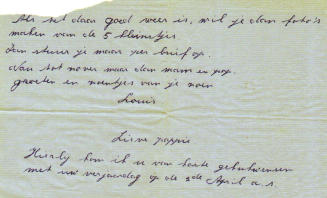 Als het daar goed weer is, wil je dan foto's
maken van de 5 kleintjes
dan stuur je maar per brief op.
Nou tot nover maar dan mam en pap.
groeten en zoentjes van je zoon
Louis
Lieve pappie
Hierbij kom ik u van harte gelukwensen
met uw verjaardag op de 3de April a.s.